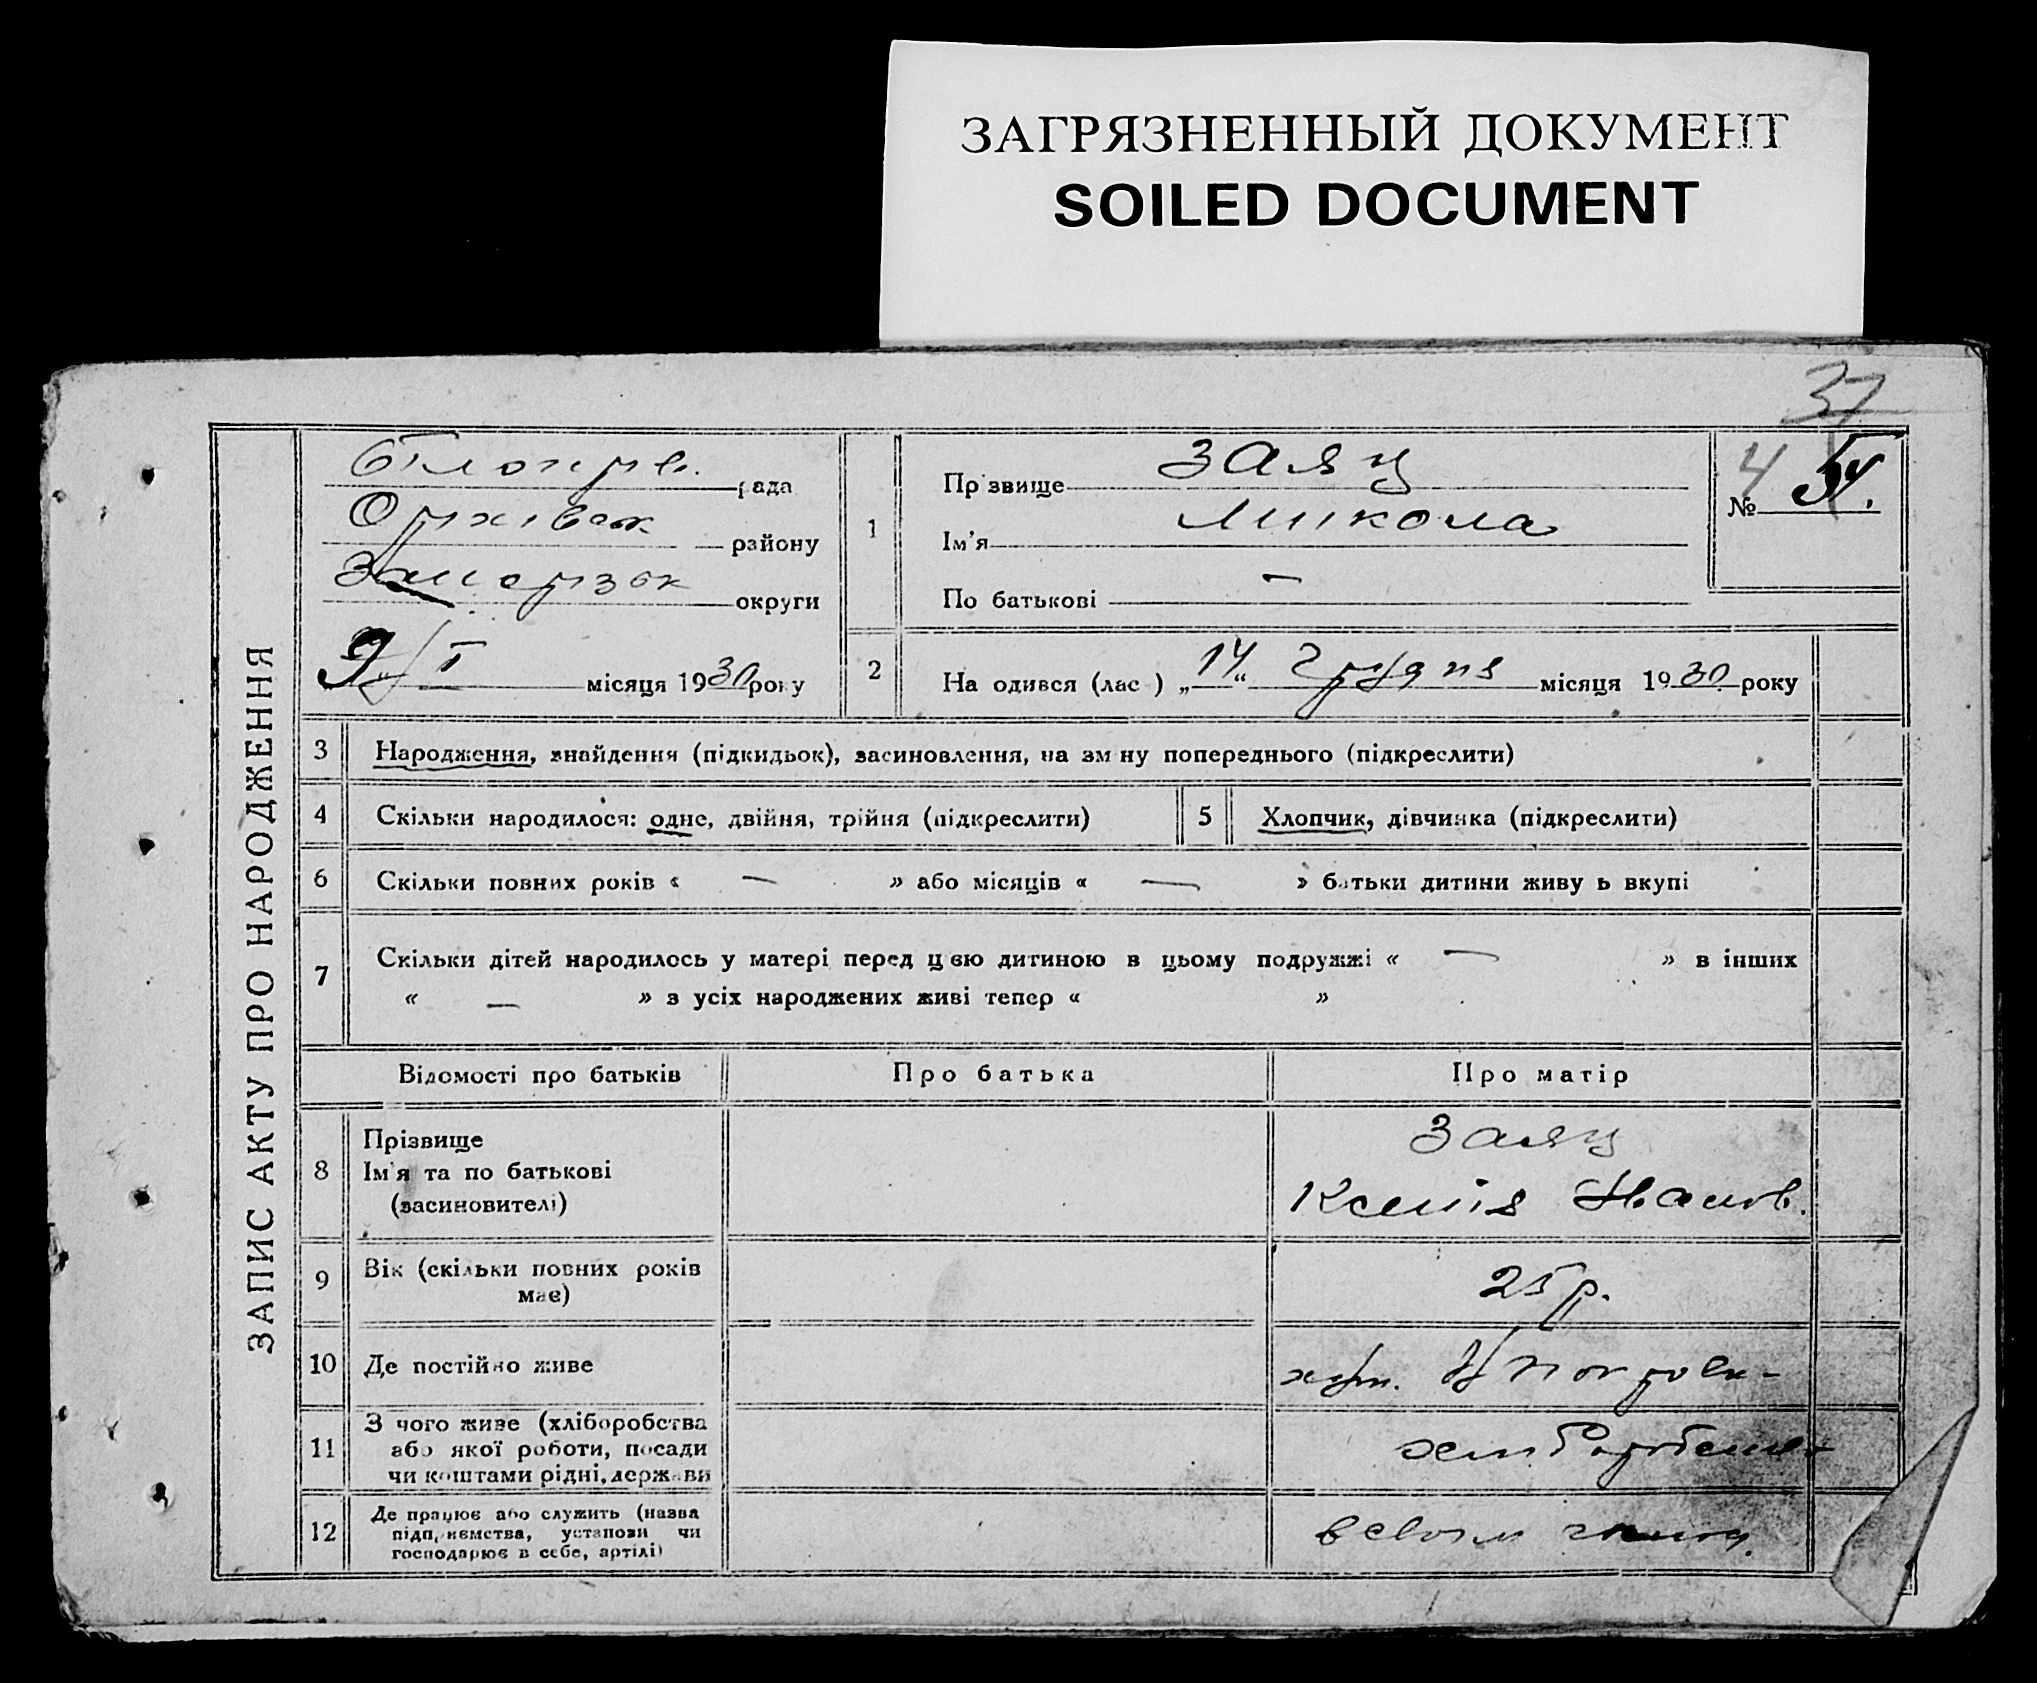 ЗАГРЯЗНЕННЫЙ ДОКУМЕНТ
SOILED DOCUMENT
37
ЗАПИС АКТУ ПРО НАРОДЖЕННЯ
рада
району
округи
9/I місяця 1930 року
1
Прізвище Заяц
Ім’я Микола
По батькові —
№ 4
2
На одився (лас ) „14“ Грудня місяця 1930 року
3 Народження, знайдення (підкидьок), засиновлення, на зм ну попереднього (підкреслити)
4 Скільки народилося: одне, двійня, трійня (підкреслити)
5 Хлопчик, дівчинка (підкреслити)
6 Скільки повних років « — » або місяців « — » батьки дитини живу ь вкупі
7 Скільки дітей народилось у матері перед цею дитиною в цьому подружжі « — » в інших
« — » з усіх народжених живі тепер « »
Відомості про батьків Про батька Про матір
8 Прізвище
Ім’я та по батькові
(засиновителі)
Заяц
Ксенія Иванов.
9 Вік (скільки повних років
має)
25 р.
10 Де постійно живе
хут.
11 З чого живе (хліборобства
або якої роботи, посади
чи коштами рідні, держави
12 Де працює або служить (назва
підп, иємства, установи чи
господарює в себе, артілі)
в своем